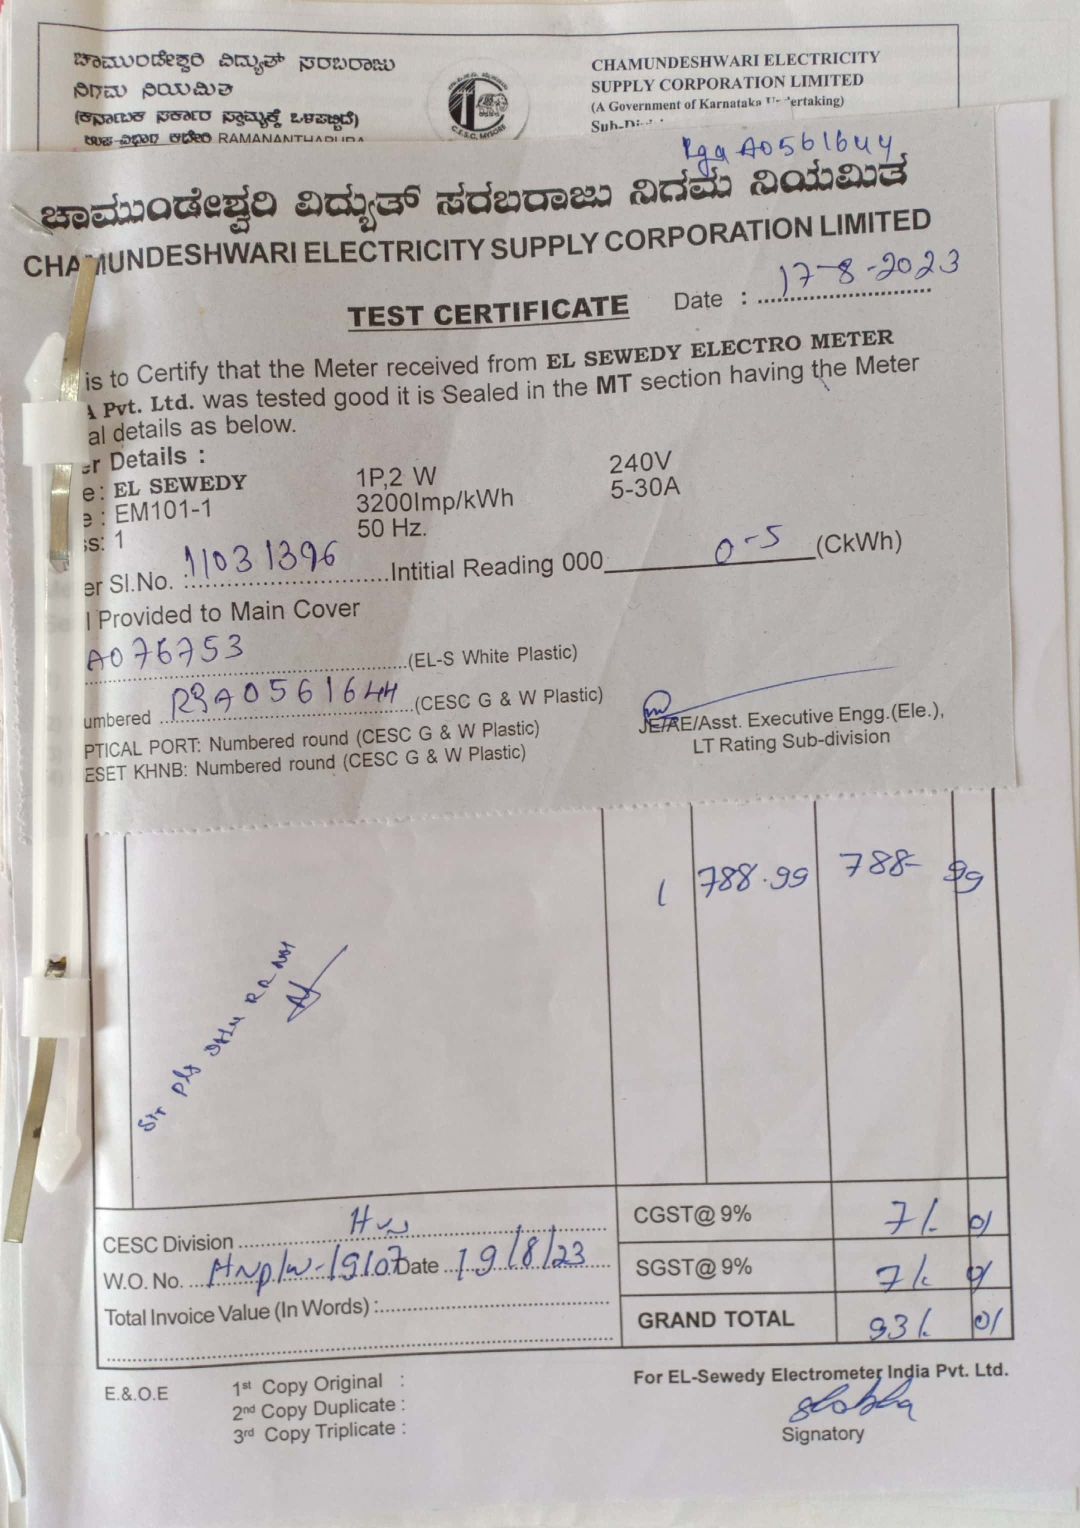 ಚಾಮುಂಡೇಶ್ವರಿ ವಿದ್ಯುತ್ ಸರಬರಾಜು
ನಿಗಮ ನಿಯಮಿತ
(ಕರ್ನಾಟಕ ಸರ್ಕಾರ ಸ್ವಾಮ್ಯಕ್ಕೆ ಒಳಪಟ್ಟಿದೆ)
ಉಪ-ವಿಭಾಗ ಕಛೇರಿ RAMANANTHAPURA
C.E.S.C, MYSORE
CHAMUNDESHWARI ELECTRICITY
SUPPLY CORPORATION LIMITED
(A Government of Karnataka
A0561644
ಚಾಮುಂಡೇಶ್ವರಿ ವಿದ್ಯುತ್ ಸರಬರಾಜು ನಿಗಮ ನಿಯಮಿತ
CHAMUNDESHWARI ELECTRICITY SUPPLY CORPORATION LIMITED
TEST CERTIFICATE Date : 17-8-2023
is to Certify that the Meter received from EL SEWEDY ELECTRO METER
A Pvt. Ltd. was tested good it is Sealed in the MT section having the Meter
al details as below.
er Details :
e : EL SEWEDY 1P,2 W 240V
e : EM101-1 3200Imp/kWh 5-30A
ss: 1 50 Hz.
er Sl.No. : 11031396 Intitial Reading 000 0-5 (CkWh)
l Provided to Main Cover
A076753 (EL-S White Plastic)
umbered RGA0561644 (CESC G & W Plastic)
PTICAL PORT: Numbered round (CESC G & W Plastic)
ESET KHNB: Numbered round (CESC G & W Plastic)
JE/AE/Asst. Executive Engg.(Ele.),
LT Rating Sub-division
1 788.99 788- 99
CESC Division
W.O. No. Date 19/8/23
Total Invoice Value (In Words) :
CGST@ 9% 71. 01
SGST@ 9% 71. 01
GRAND TOTAL 931. 01
E.&.O.E
1st Copy Original :
2nd Copy Duplicate :
3rd Copy Triplicate :
For EL-Sewedy Electrometer India Pvt. Ltd.
Signatory